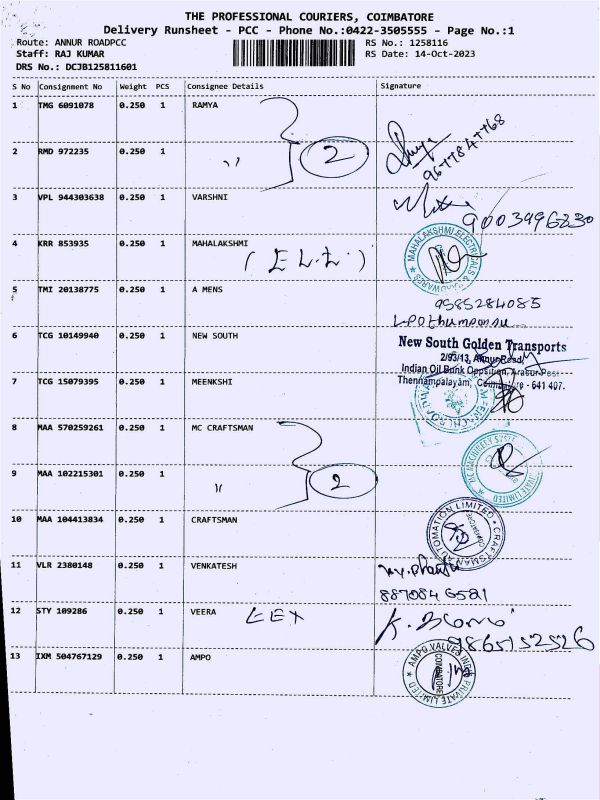 THE PROFESSIONAL COURIERS, COIMBATORE
Delivery Runsheet - PCC - Phone No.:0422-3505555 - Page No.:1
Route: ANNUR ROADPCC RS No.: 1258116
Staff: RAJ KUMAR RS Date: 14-Oct-2023
DRS No.: DCJB125811601
S No Consignment No Weight PCS Consignee Details Signature
1 TMG 6091078 0.250 1 RAMYA
2 RMD 972235 0.250 1 " 2
3 VPL 944303638 0.250 1 VARSHNI
9003996830
4 KRR 853935 0.250 1 MAHALAKSHMI
MAHALAKSHMI ELECTRICALS &
5 TMI 20138775 0.250 1 A MENS
9585284085
6 TCG 10149940 0.250 1 NEW SOUTH
New South Golden Transports
2/93/13, Annur Road,
Indian Oil Bunk Opposition, Arasur Post
Thennampalayam, Coimbatore - 641 407.
7 TCG 15079395 0.250 1 MEENKSHI
8 MAA 570259261 0.250 1 MC CRAFTSMAN
MC MACHINERY SYSTEMS PRIVATE LIMITED
9 MAA 102215301 0.250 1 " 2
10 MAA 104413834 0.250 1 CRAFTSMAN
CRAFTSMAN AUTOMATION LIMITED
COIMBATORE
11 VLR 2380148 0.250 1 VENKATESH
8870846581
12 STY 109286 0.250 1 VEERA
9865152526
13 IXM 504767129 0.250 1 AMPO
AMPO VALVES INDIA PRIVATE LIMITED
COIMBATORE